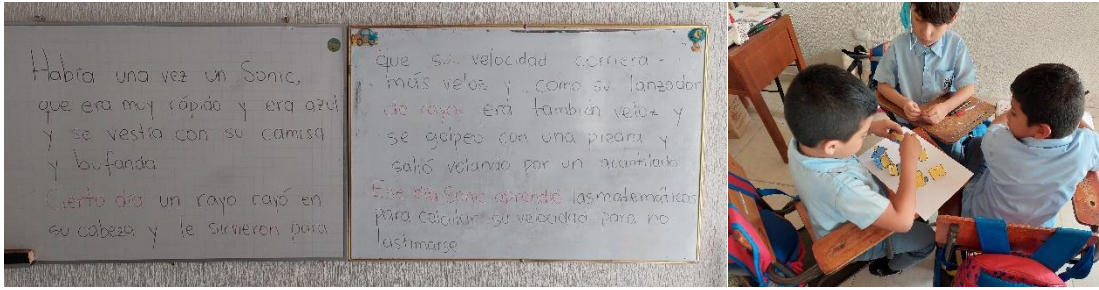 Había una vez un Sonic,
que era muy rápido y era azul
y se vestía con su camisa
y bufanda
Cierto día un rayo cayó en
su cabeza y le sirvieron para
que su velocidad corriera
más veloz y como su lanzador
de rayos era también veloz y
se golpeo con una piedra y
salió volando por un acantilado
Ese día Sonic aprendió las matemáticas
para calcular su velocidad para no
lastimarse